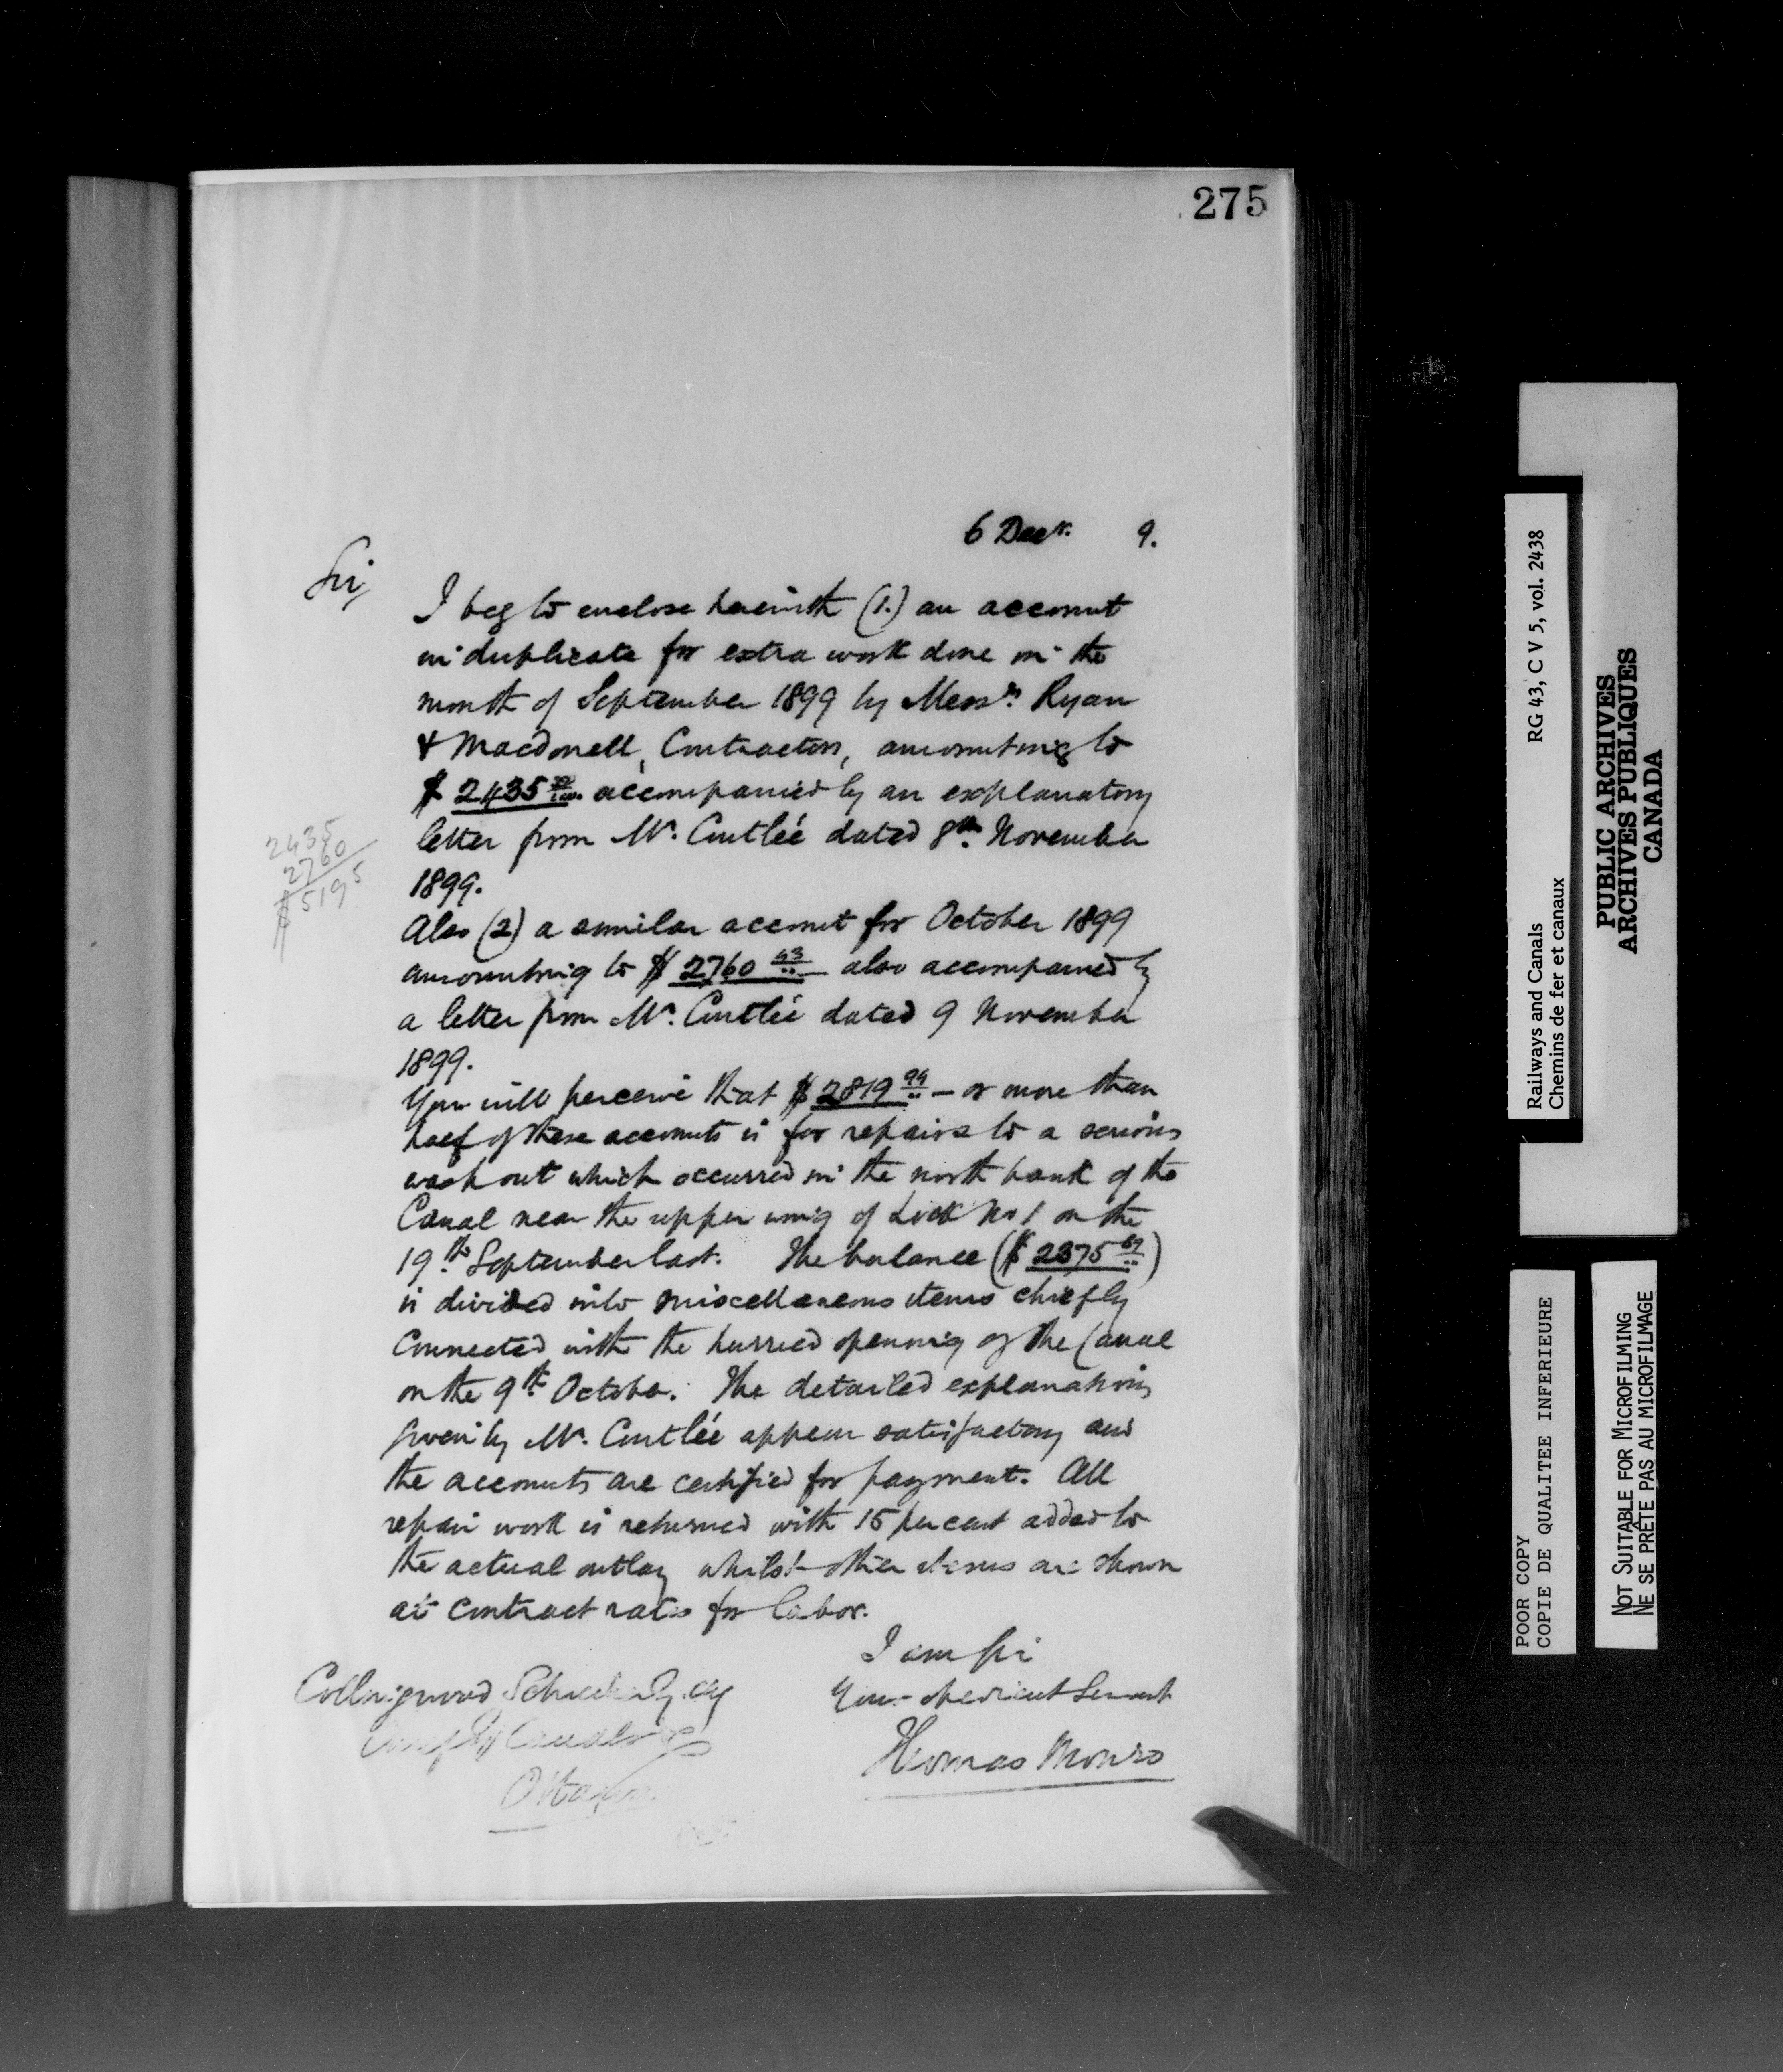 275
6 Decr. 9.
Sir,
I beg to enclose herewith (1.) an account
in duplicate for extra work done in the
month of September 1899 by Messrs. Ryan
& Macdonell, Contractors, amounting to
$ 2435 accompanied by an explanatory
letter from Mr. Coutlée dated 8th. November
1899.
2435
2760
$5195
Also (2) a similar account for October 1899
amounting to $ 2760 43 also accompanied by
a letter from Mr. Coutlée dated 9 November
1899.
You will perceive that $ 2819 94 – or more than
half of these accounts is for repairs to a serious
washout which occurred in the north bank of the
Canal near the upper wing of Lock No 1 on the
19th. September last. The balance ($ 2375 69)
is divided into miscellaneous items chiefly
connected with the hurried opening of the Canal
on the 9th. October. The detailed explanations
given by Mr. Coutlée appear satisfactory and
the accounts are certified for payment. All
repair work is returned with 15 per cent added to
the actual outlay whilst other items are shown
at contract rates for labor.
I am Sir
Your obedient Servant
Thomas Monro
Collingwood Schreiber Esq.
Canals
Ottawa
Railways and Canals RG 43, C V 5, vol. 2438
Chemins de fer et canaux
PUBLIC ARCHIVES
ARCHIVES PUBLIQUES
CANADA
POOR COPY
COPIE DE QUALITEE INFERIEURE
NOT SUITABLE FOR MICROFILMING
NE SE PRÊTE PAS AU MICROFILMAGE